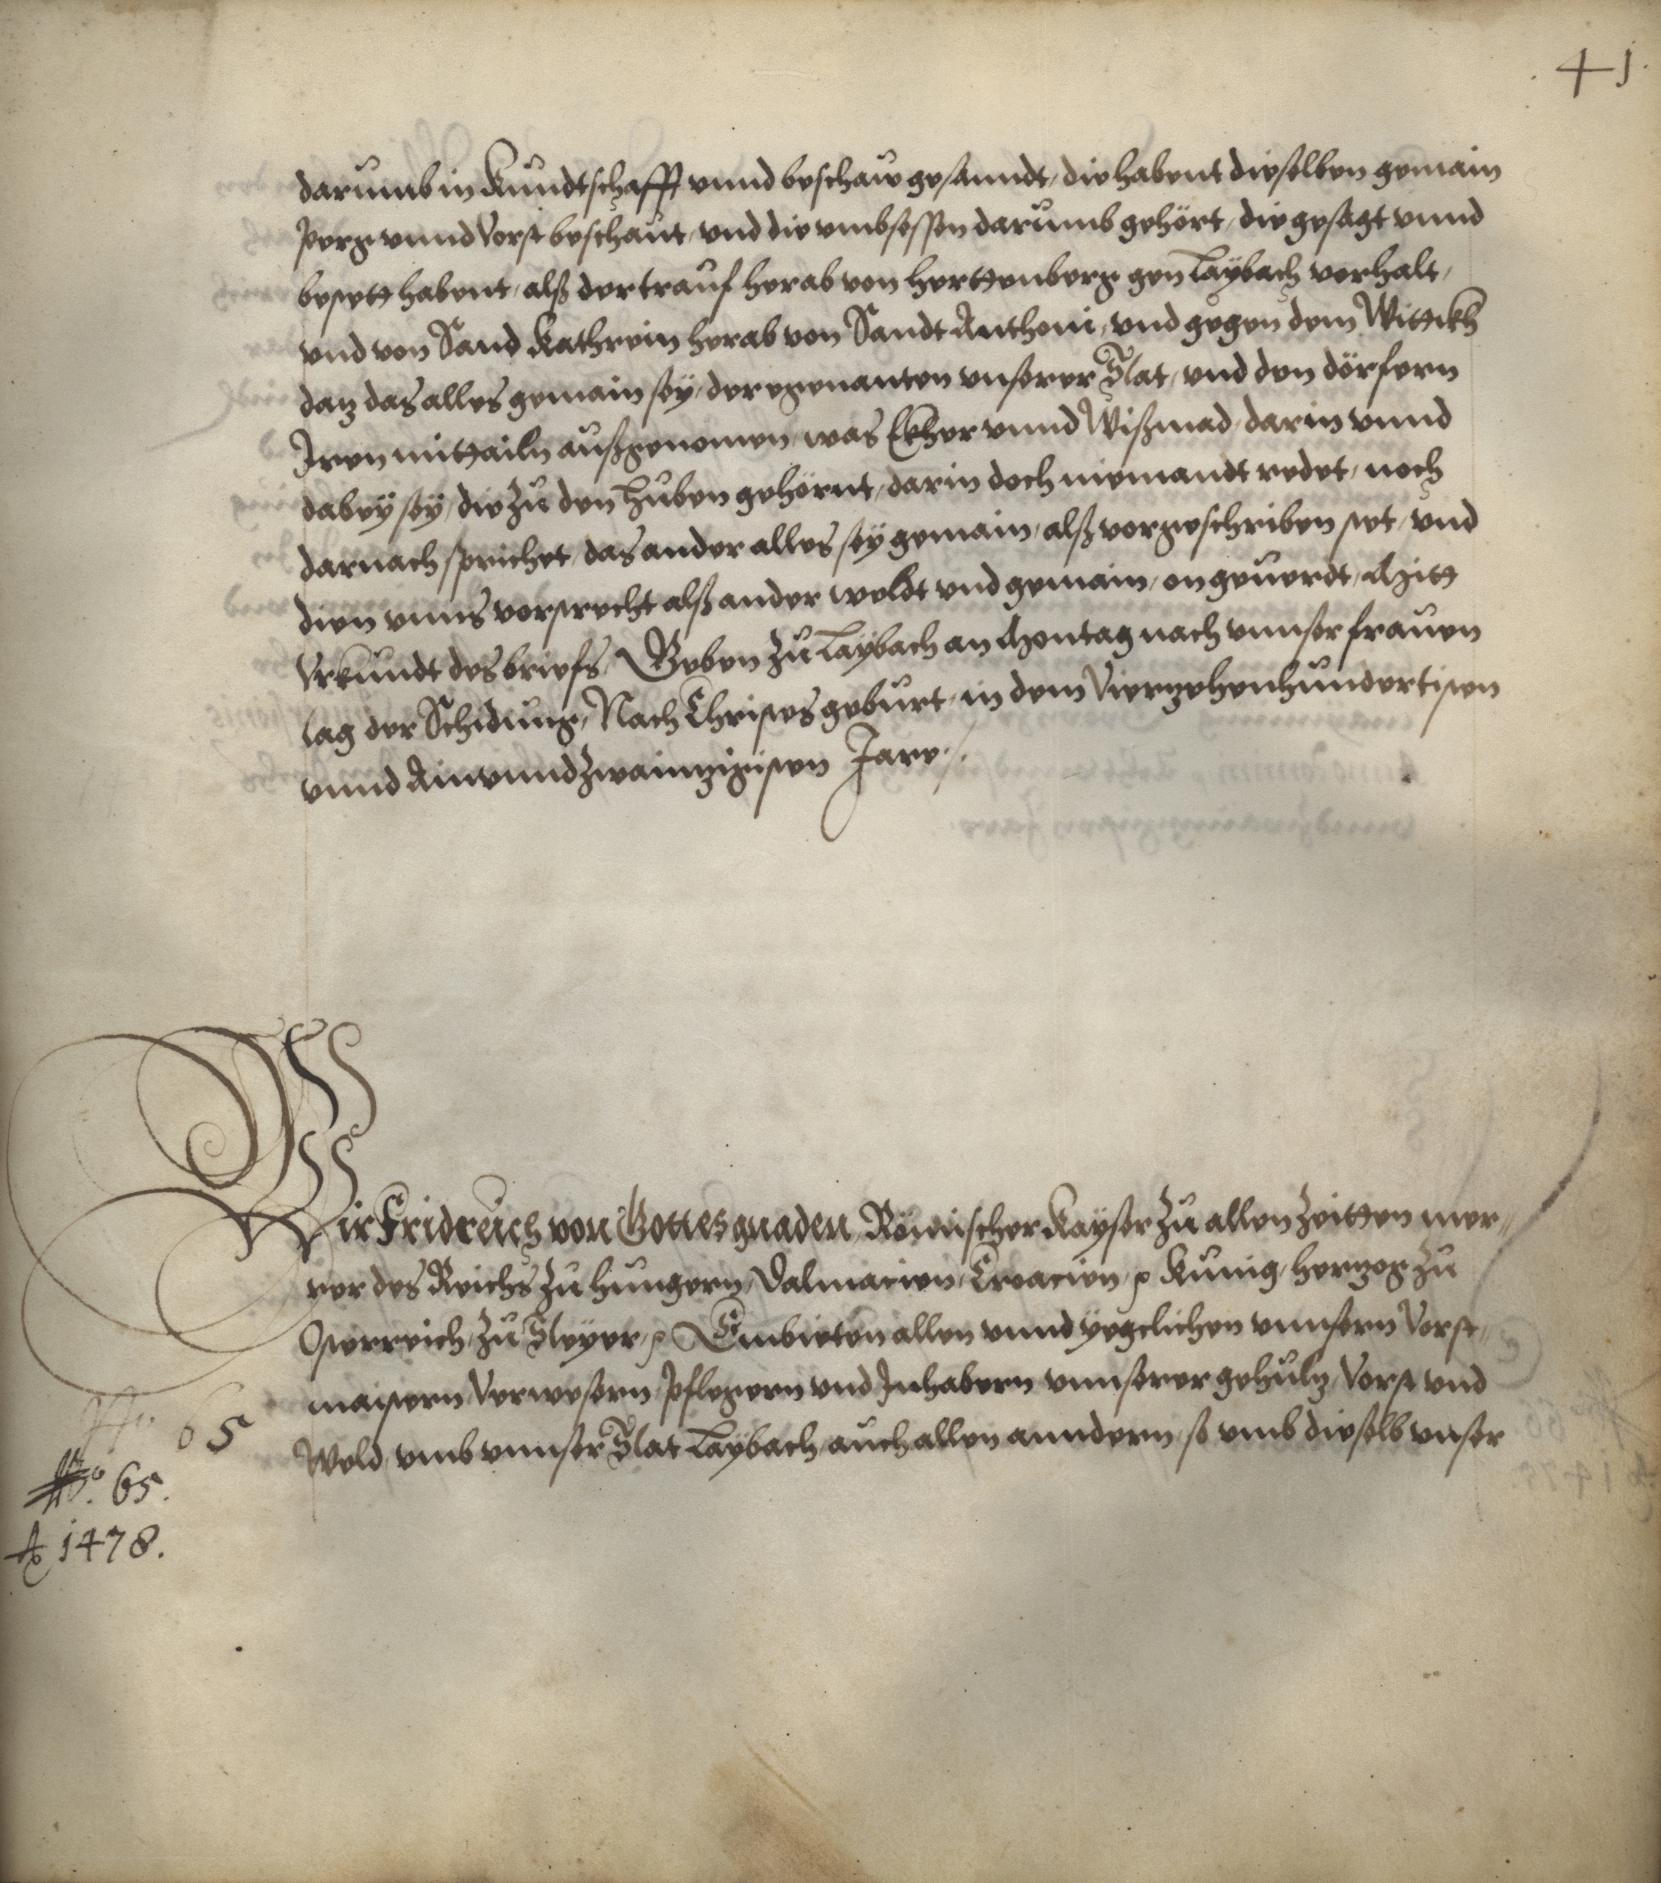 41.
darumb in Kundtschafft vnnd beschaw gesanndt, die habent dieselben gemain
perg vnnd Vorst beschaut, vnd die vmbsessen darumb gehört, die gesagt vnnd
bestett habent, alß der trauf herab von Herttenberg gen Laybach verhalt,
vnd von Sand Kathrein herab von Sandt Anthoni, vnd gegen dem Wittikh
datz das alles gemain sey, der egenanten vnserer Stat, vnd den dörfern
Iren mittailn außgenomen, was Ekher vnnd Wißmad darin vnnd
dabey sey, die zu den huben gehörnt, darin doch niemandt redet, noch
darnach sprichet, das ander alles sey gemain, alß vorgeschriben stet, vnd
dien vnns vorstrecht alß ander weldt vnd gemain, on geuerdt, Mitt
Vrkundt des briefs, Geben zu Laybach an Montag nach vnnser frauen
tag der Schidung, Nach Christes geburt, in dem Vierzehenhundertisten
vnnd Ainundzwaintzigisten Jare ./.
Wir Fridreich von Gottes gnaden, Römischer Kayser zu allen zeitten mer-
rer des Reichs zu Hungern, Dalmacien, Croacien, ꝛc Kunig, Hertzog zu
Osterreich, zu Steyer, ꝛc Embieten allen vnnd yegclichen vnnsern Vorst-
maistern, Verwesern, Pflegern vnd Inhabern vnnserer gehultz, Vorst vnd
Weld vmb vnnser Stat Laybach, auch allen anndern, so vmb dieselb vnser
No 65
No. 65.
Ao 1478.